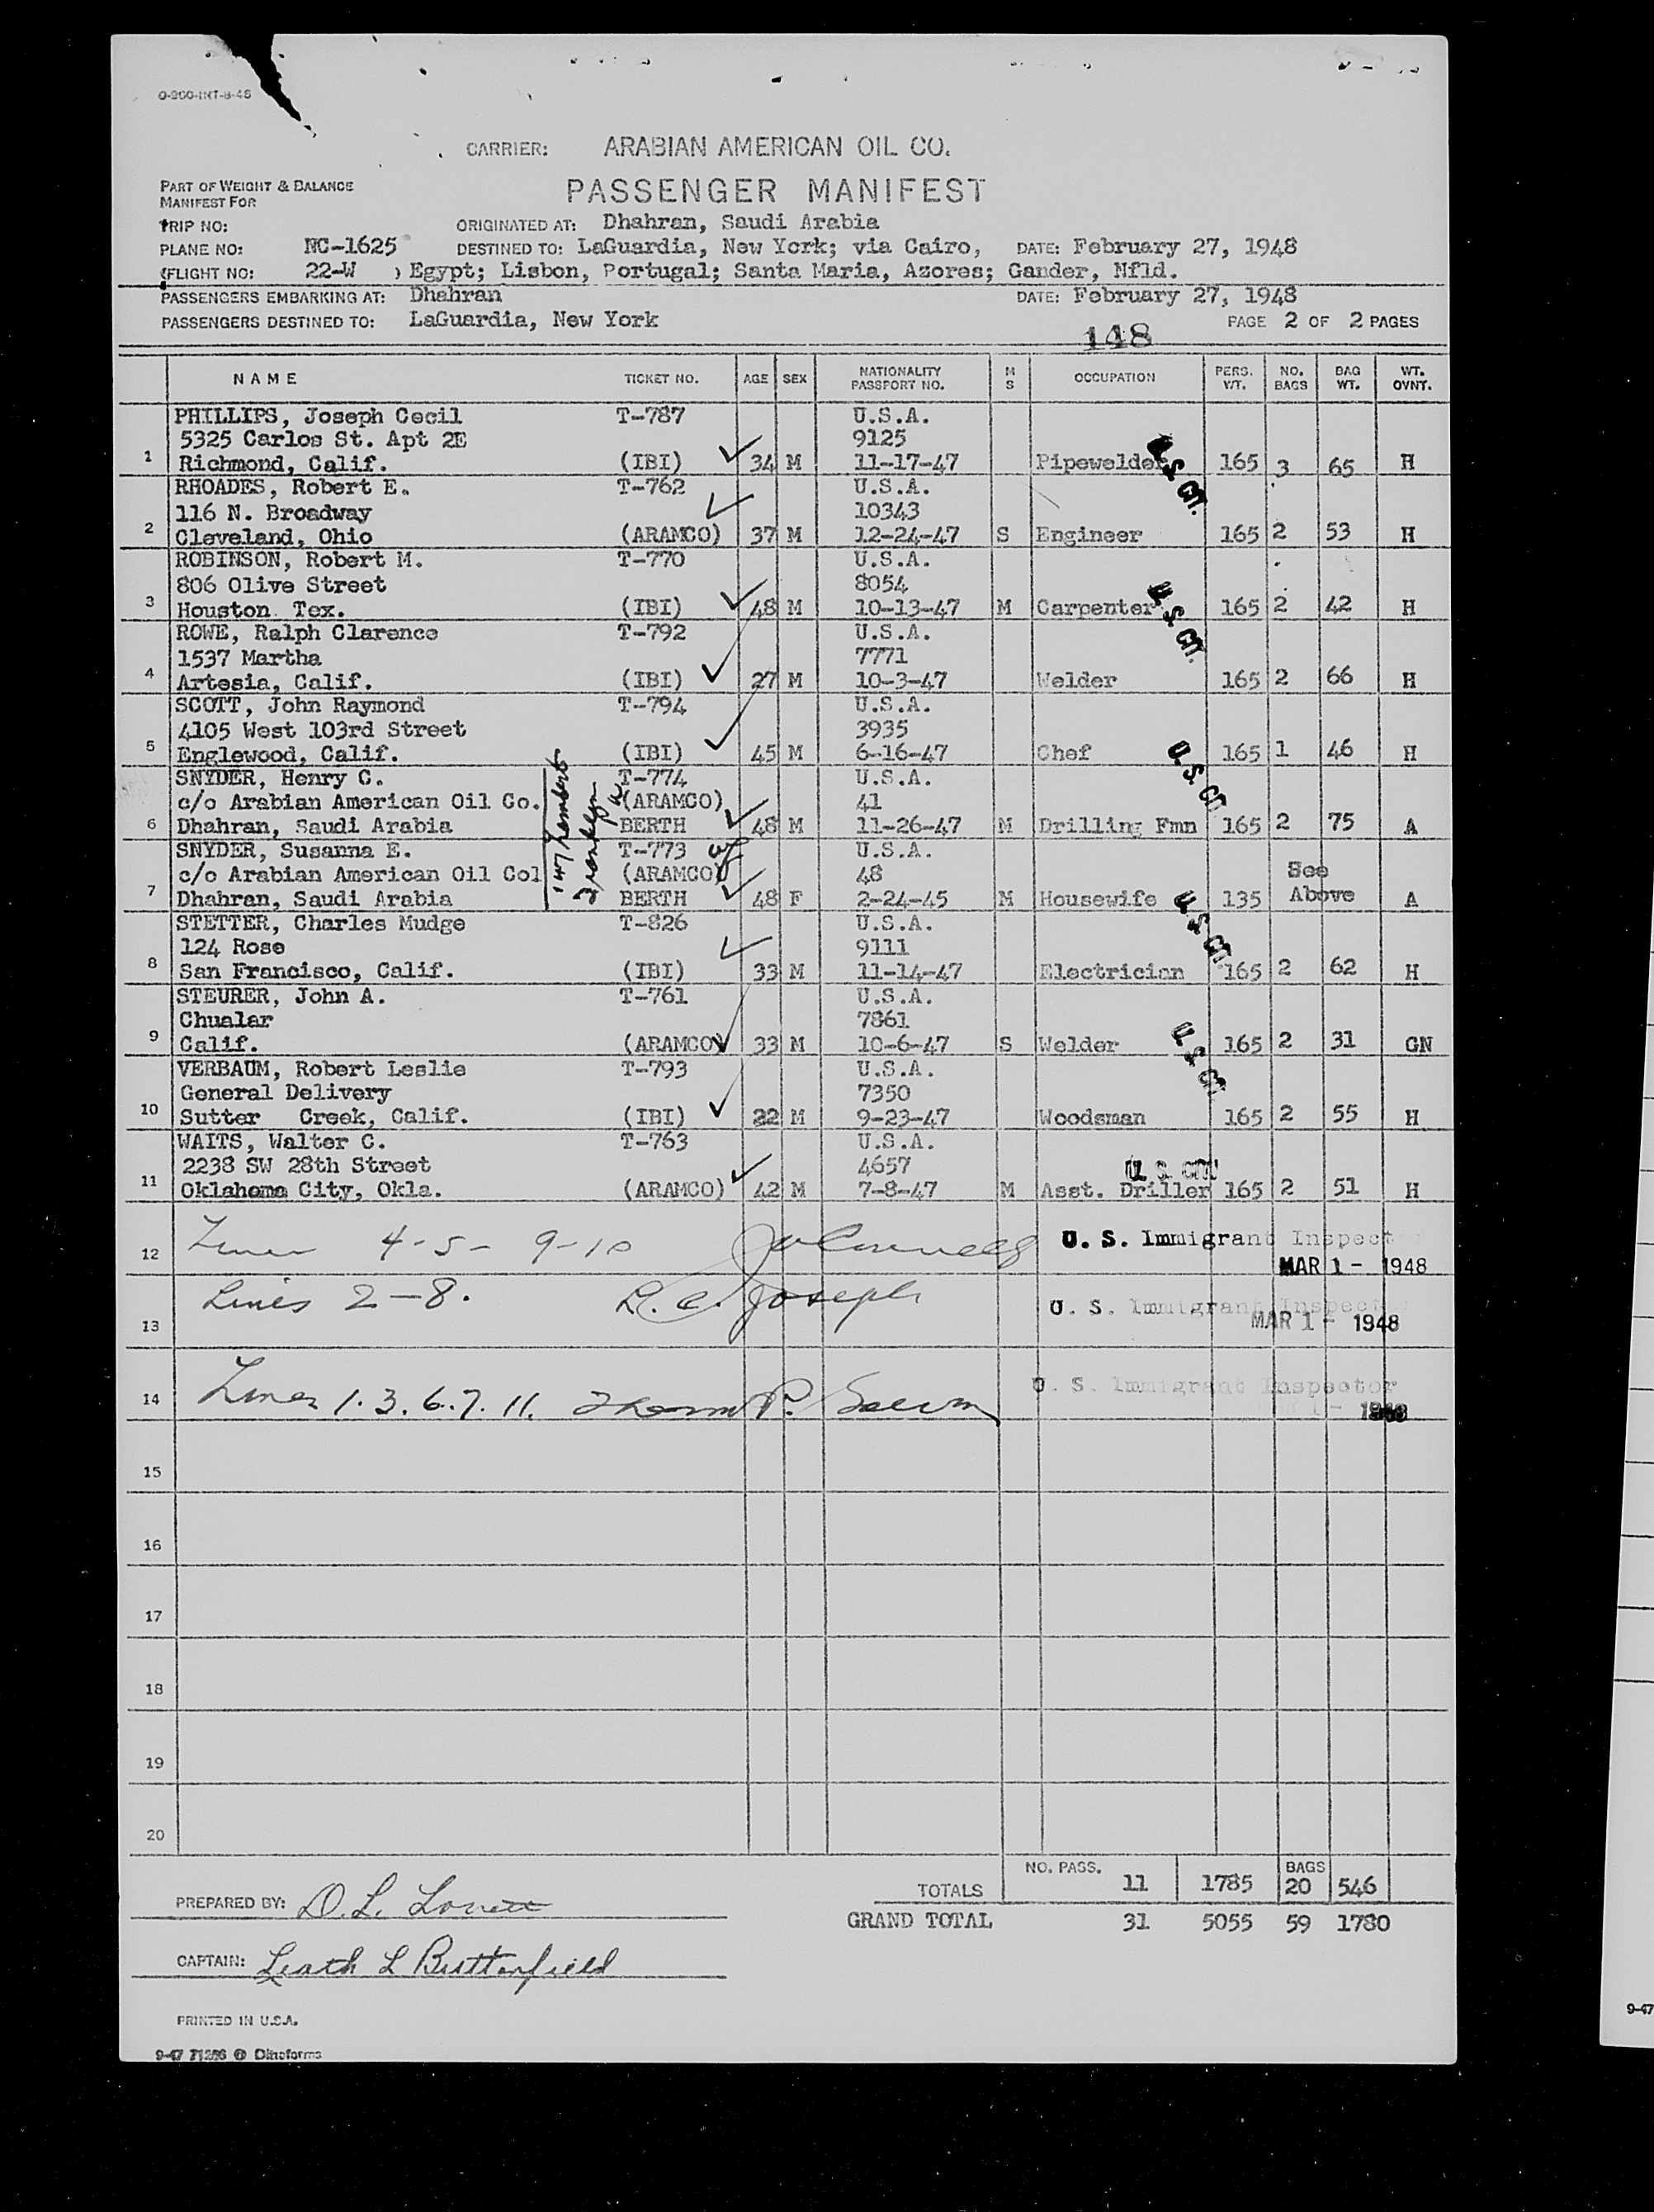 CARRIER: ARABIAN AMERICAN OIL CO.
PART OF WEIGHT & BALANCE
MANIFEST FOR
PASSENGER MANIFEST
TRIP NO: ORIGINATED AT: Dhahran, Saudi Arabia
PLANE NO: NC-1625 DESTINED TO: LaGuardia, New York; via Cairo, DATE: February 27, 1948
(FLIGHT NO: 22-W ) Egypt; Lisbon, Portugal; Santa Maria, Azores; Gander, Nfld.
PASSENGERS EMBARKING AT: Dhahran DATE: February 27, 1948
PASSENGERS DESTINED TO: LaGuardia, New York PAGE 2 OF 2 PAGES
148
NAME TICKET NO. AGE SEX NATIONALITY PASSPORT NO. M S OCCUPATION PERS. WT. NO. BAGS BAG WT. WT. OVNT.
PHILLIPS, Joseph Cecil T-787 U.S.A.
5325 Carlos St. Apt 2E 9125
1 Richmond, Calif. (IBI) 34 M 11-17-47 Pipewelder U.S. CIT. 165 3 65 H
RHOADES, Robert E. T-762 U.S.A.
116 N. Broadway 10343
2 Cleveland, Ohio (ARAMCO) 37 M 12-24-47 S Engineer 165 2 53 H
ROBINSON, Robert M. T-770 U.S.A.
806 Olive Street 8054
3 Houston Tex. (IBI) 48 M 10-13-47 M Carpenter U.S. CIT. 165 2 42 H
ROWE, Ralph Clarence T-792 U.S.A.
1537 Martha 7771
4 Artesia, Calif. (IBI) 27 M 10-3-47 Welder 165 2 66 H
SCOTT, John Raymond T-794 U.S.A.
4105 West 103rd Street 3935
5 Englewood, Calif. (IBI) 45 M 6-16-47 Chef U.S. CIT. 165 1 46 H
SNYDER, Henry C. T-774 U.S.A.
c/o Arabian American Oil Co. (ARAMCO) 41
6 Dhahran, Saudi Arabia BERTH 48 M 11-26-47 M Drilling Fmn 165 2 75 A
SNYDER, Susanna E. T-773 U.S.A.
c/o Arabian American Oil Col (ARAMCO) 48 See
7 Dhahran, Saudi Arabia BERTH 48 F 2-24-45 M Housewife U.S. CIT. 135 Above A
STETTER, Charles Mudge T-826 U.S.A.
124 Rose 9111
8 San Francisco, Calif. (IBI) 33 M 11-14-47 Electrician 165 2 62 H
STEURER, John A. T-761 U.S.A.
Chualar 7861
9 Calif. (ARAMCO) 33 M 10-6-47 S Welder U.S. CIT. 165 2 31 GN
VERBAUM, Robert Leslie T-793 U.S.A.
General Delivery 7350
10 Sutter Creek, Calif. (IBI) 22 M 9-23-47 Woodsman 165 2 55 H
WAITS, Walter C. T-763 U.S.A.
2238 SW 28th Street 4657 U. S. CIT.
11 Oklahoma City, Okla. (ARAMCO) 42 M 7-8-47 M Asst. Driller 165 2 51 H
12 Lines 4-5-9-10 U. S. Immigrant Inspect
MAR 1 - 1948
13 Lines 2-8. R. C. Joseph U. S. Immigrant Inspect
MAR 1 - 1948
14 Lines 1.3.6.7.11. P. U. S. Immigrant Inspector
1 - 1948
15
16
17
18
19
20
TOTALS NO. PASS. 11 1785 BAGS 20 546
PREPARED BY: D.L.
GRAND TOTAL 31 5055 59 1780
CAPTAIN: Leath L Butterfield
PRINTED IN U.S.A.